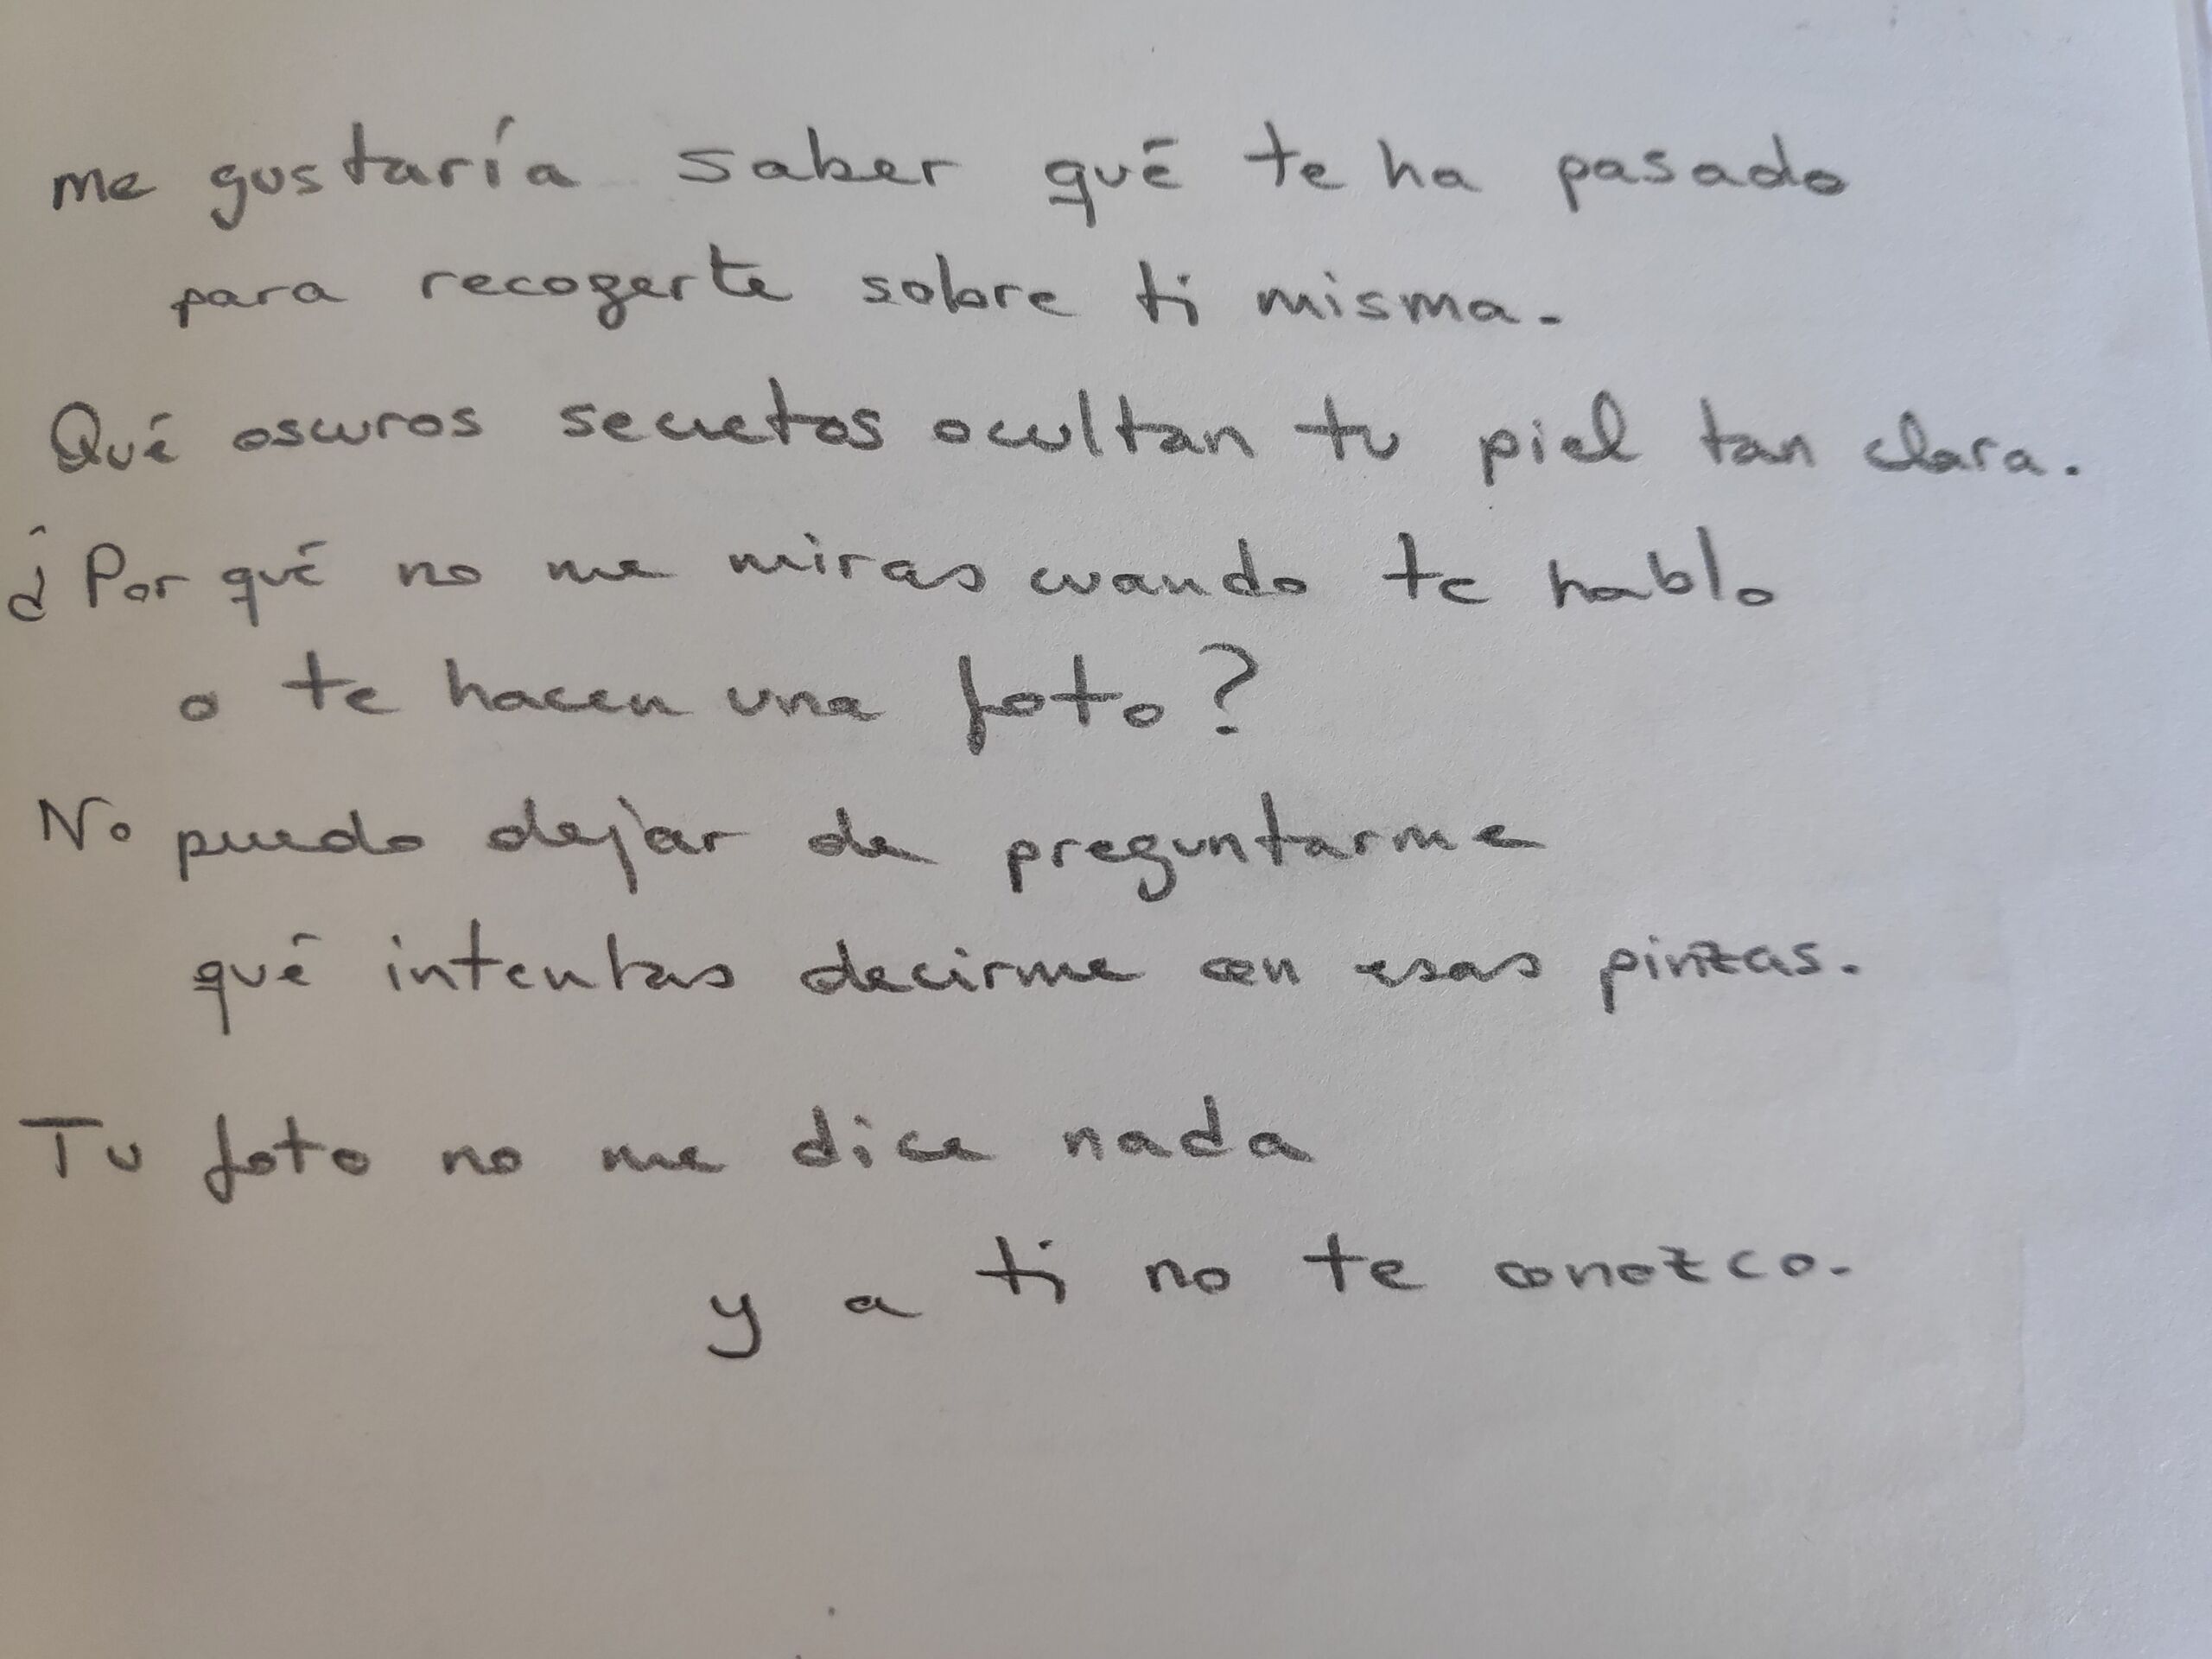 me gustaría saber qué te ha pasado
para recogerte sobre ti misma.
Qué oscuros secretos ocultan tu piel tan clara.
¿Por qué no me miras cuando te hablo
o te hacen una foto?
No puedo dejar de preguntarme
qué intentas decirme con esas pinzas.
Tu foto no me dice nada
y a ti no te conozco.